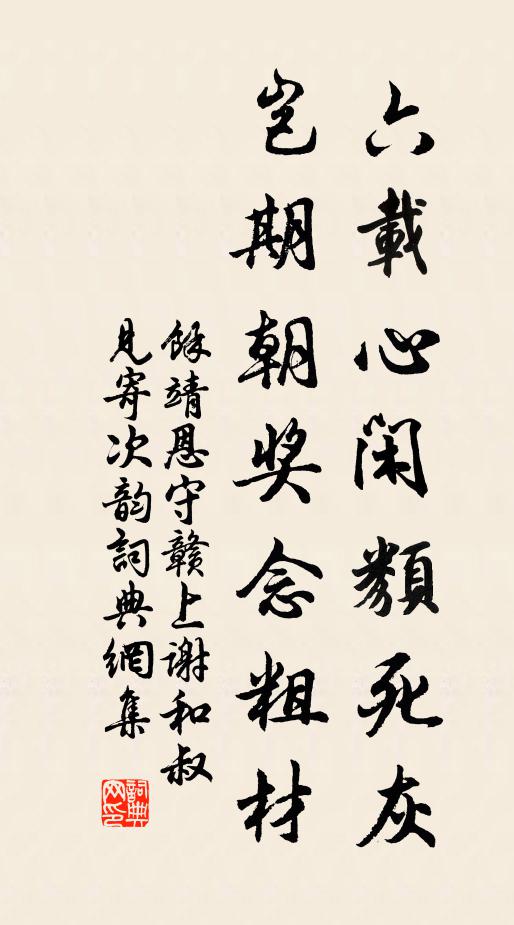 六載心閑類死灰
豈期朝奖念粗材
餘靖恩守贛上谢和叔
見寄次韵詞典網集
詞典
网印